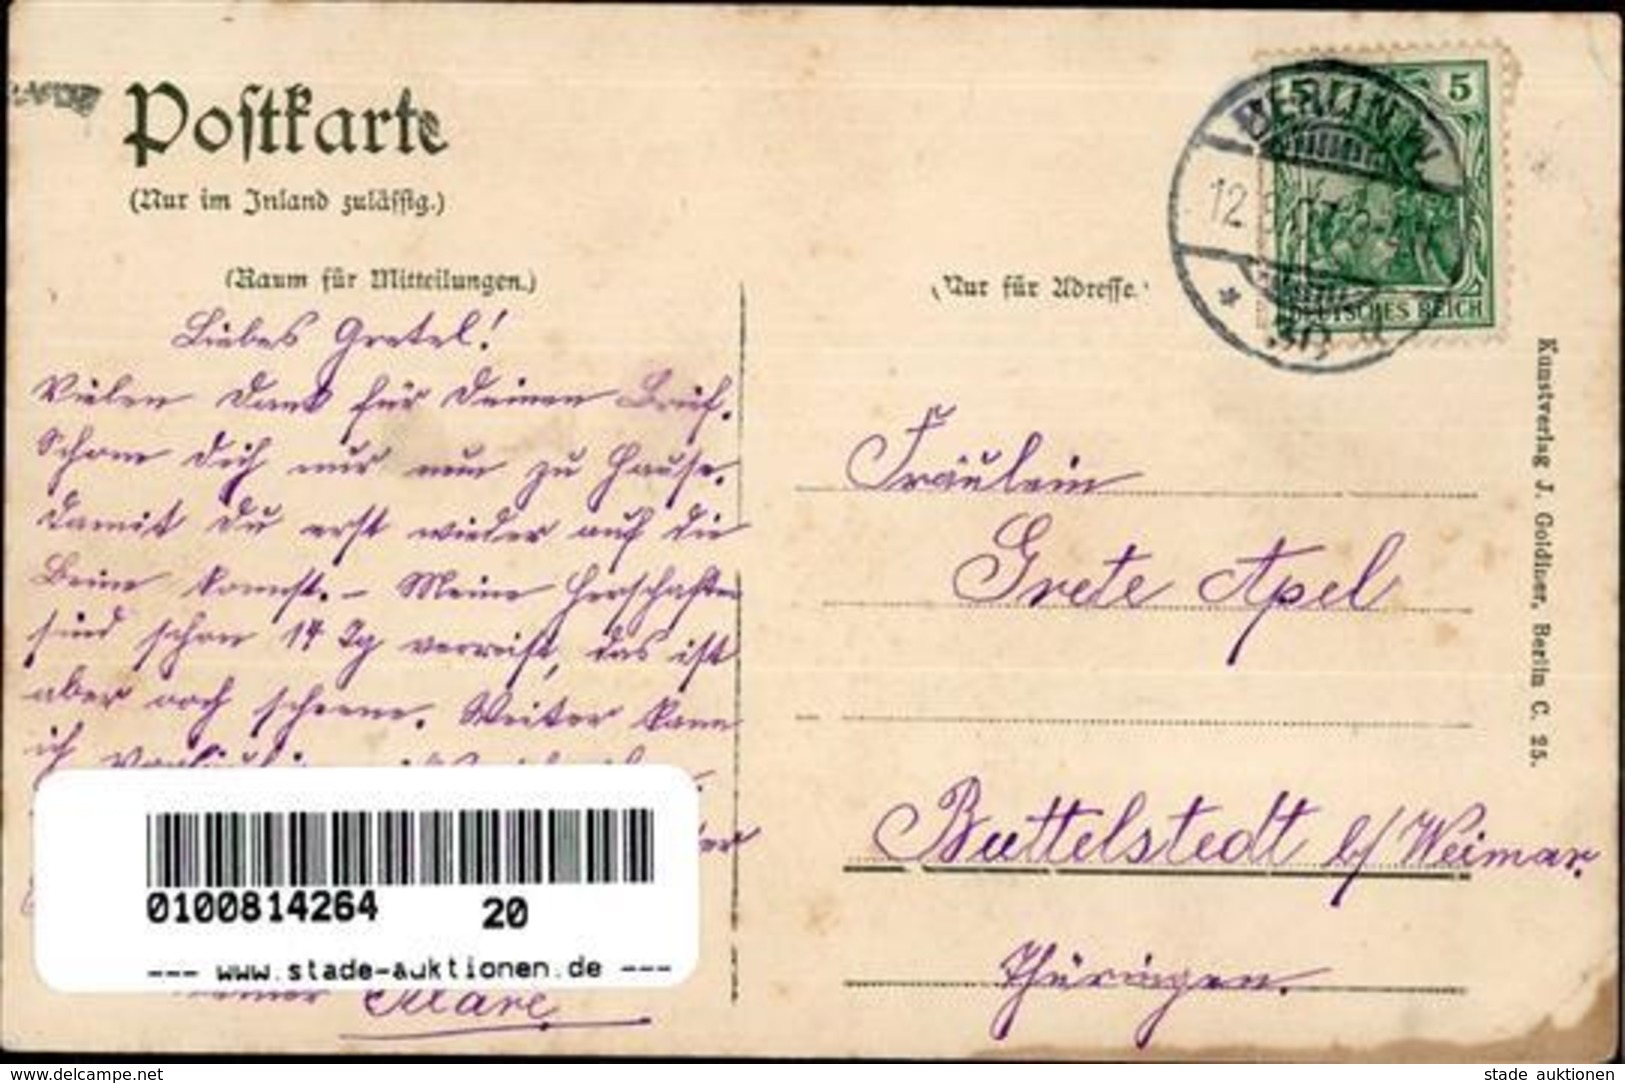 Postkarte
(Nur im Inland zulässig.)
(Raum für Mitteilungen.)
Liebes Gretel!
Vielen Dank für Deinen Brief.
Schone Dich nur nun zu Hause.
damit Du erst wieder auf die
Beine kommst. – Meine Herschaften
sind schon 14 Tg verreist, das ist
aber noch scheene. Weiter kann
ich
Klare
Nur für Adresse.
BERLIN W
12
5
DEUTSCHES REICH
Fräulein
Grete Apel
Buttelstedt b/ Weimar.
Thüringen.
Kunstverlag J. Goldiner, Berlin C. 25.
0100814264 20
--- www.stade-auktionen.de ---
www.delcampe.net
stade auktionen